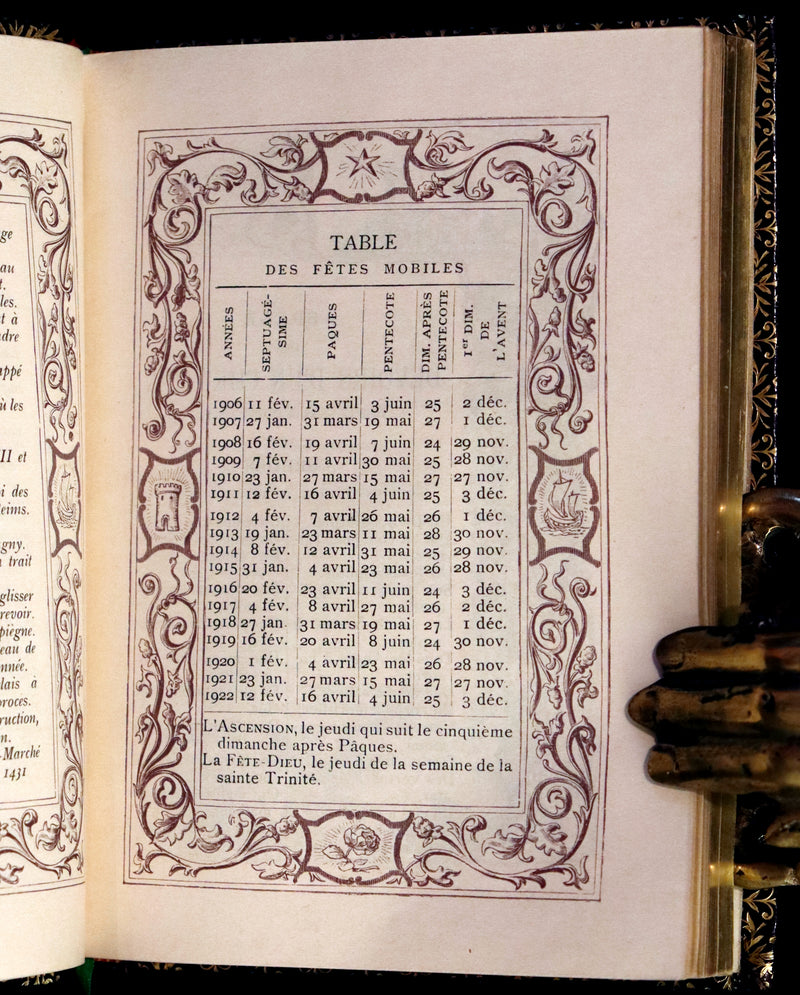 ge
au
t.
les.
t à
dre
appé
ù les
II et
i des
eims.
gny.
trait
glisser
revoir.
piègne.
eau de
nnée.
lais à
proces.
ruction,
n.
-Marché
1431
TABLE
DES FÊTES MOBILES
ANNÉES SEPTUAGÉ-SIME PAQUES PENTECOTE DIM. APRÈS PENTECOTE 1er DIM. DE L'AVENT
1906 11 fév. 15 avril 3 juin 25 2 déc.
1907 27 jan. 31 mars 19 mai 27 1 déc.
1908 16 fév. 19 avril 7 juin 24 29 nov.
1909 7 fév. 11 avril 30 mai 25 28 nov.
1910 23 jan. 27 mars 15 mai 27 27 nov.
1911 12 fév. 16 avril 4 juin 25 3 déc.
1912 4 fév. 7 avril 26 mai 26 1 déc.
1913 19 jan. 23 mars 11 mai 28 30 nov.
1914 8 fév. 12 avril 31 mai 25 29 nov.
1915 31 jan. 4 avril 23 mai 26 28 nov.
1916 20 fév. 23 avril 11 juin 24 3 déc.
1917 4 fév. 8 avril 27 mai 26 2 déc.
1918 27 jan. 31 mars 19 mai 27 1 déc.
1919 16 fév. 20 avril 8 juin 24 30 nov.
1920 1 fév. 4 avril 23 mai 26 28 nov.
1921 23 jan. 27 mars 15 mai 27 27 nov.
1922 12 fév. 16 avril 4 juin 25 3 déc.
L'ASCENSION, le jeudi qui suit le cinquième
dimanche après Pâques.
La FÊTE-DIEU, le jeudi de la semaine de la
sainte Trinité.